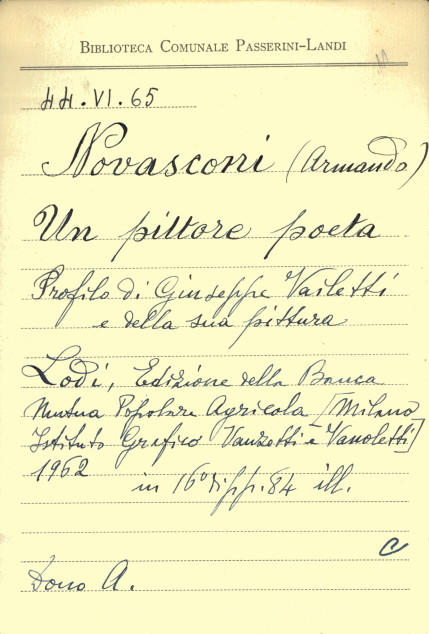 BIBLIOTECA COMUNALE PASSERINI-LANDI
44.VI.65
Novasconi (Armando)
Un pittore poeta
Profilo di Giuseppe Vailetti
e della sua pittura
Lodi, Edizione della Banca
Mutua Popolare Agricola [Milano
Istituto Grafico Vanzetti e Vanoletti]
1962
in 16° di pp. 84 ill.
C
Dono A.